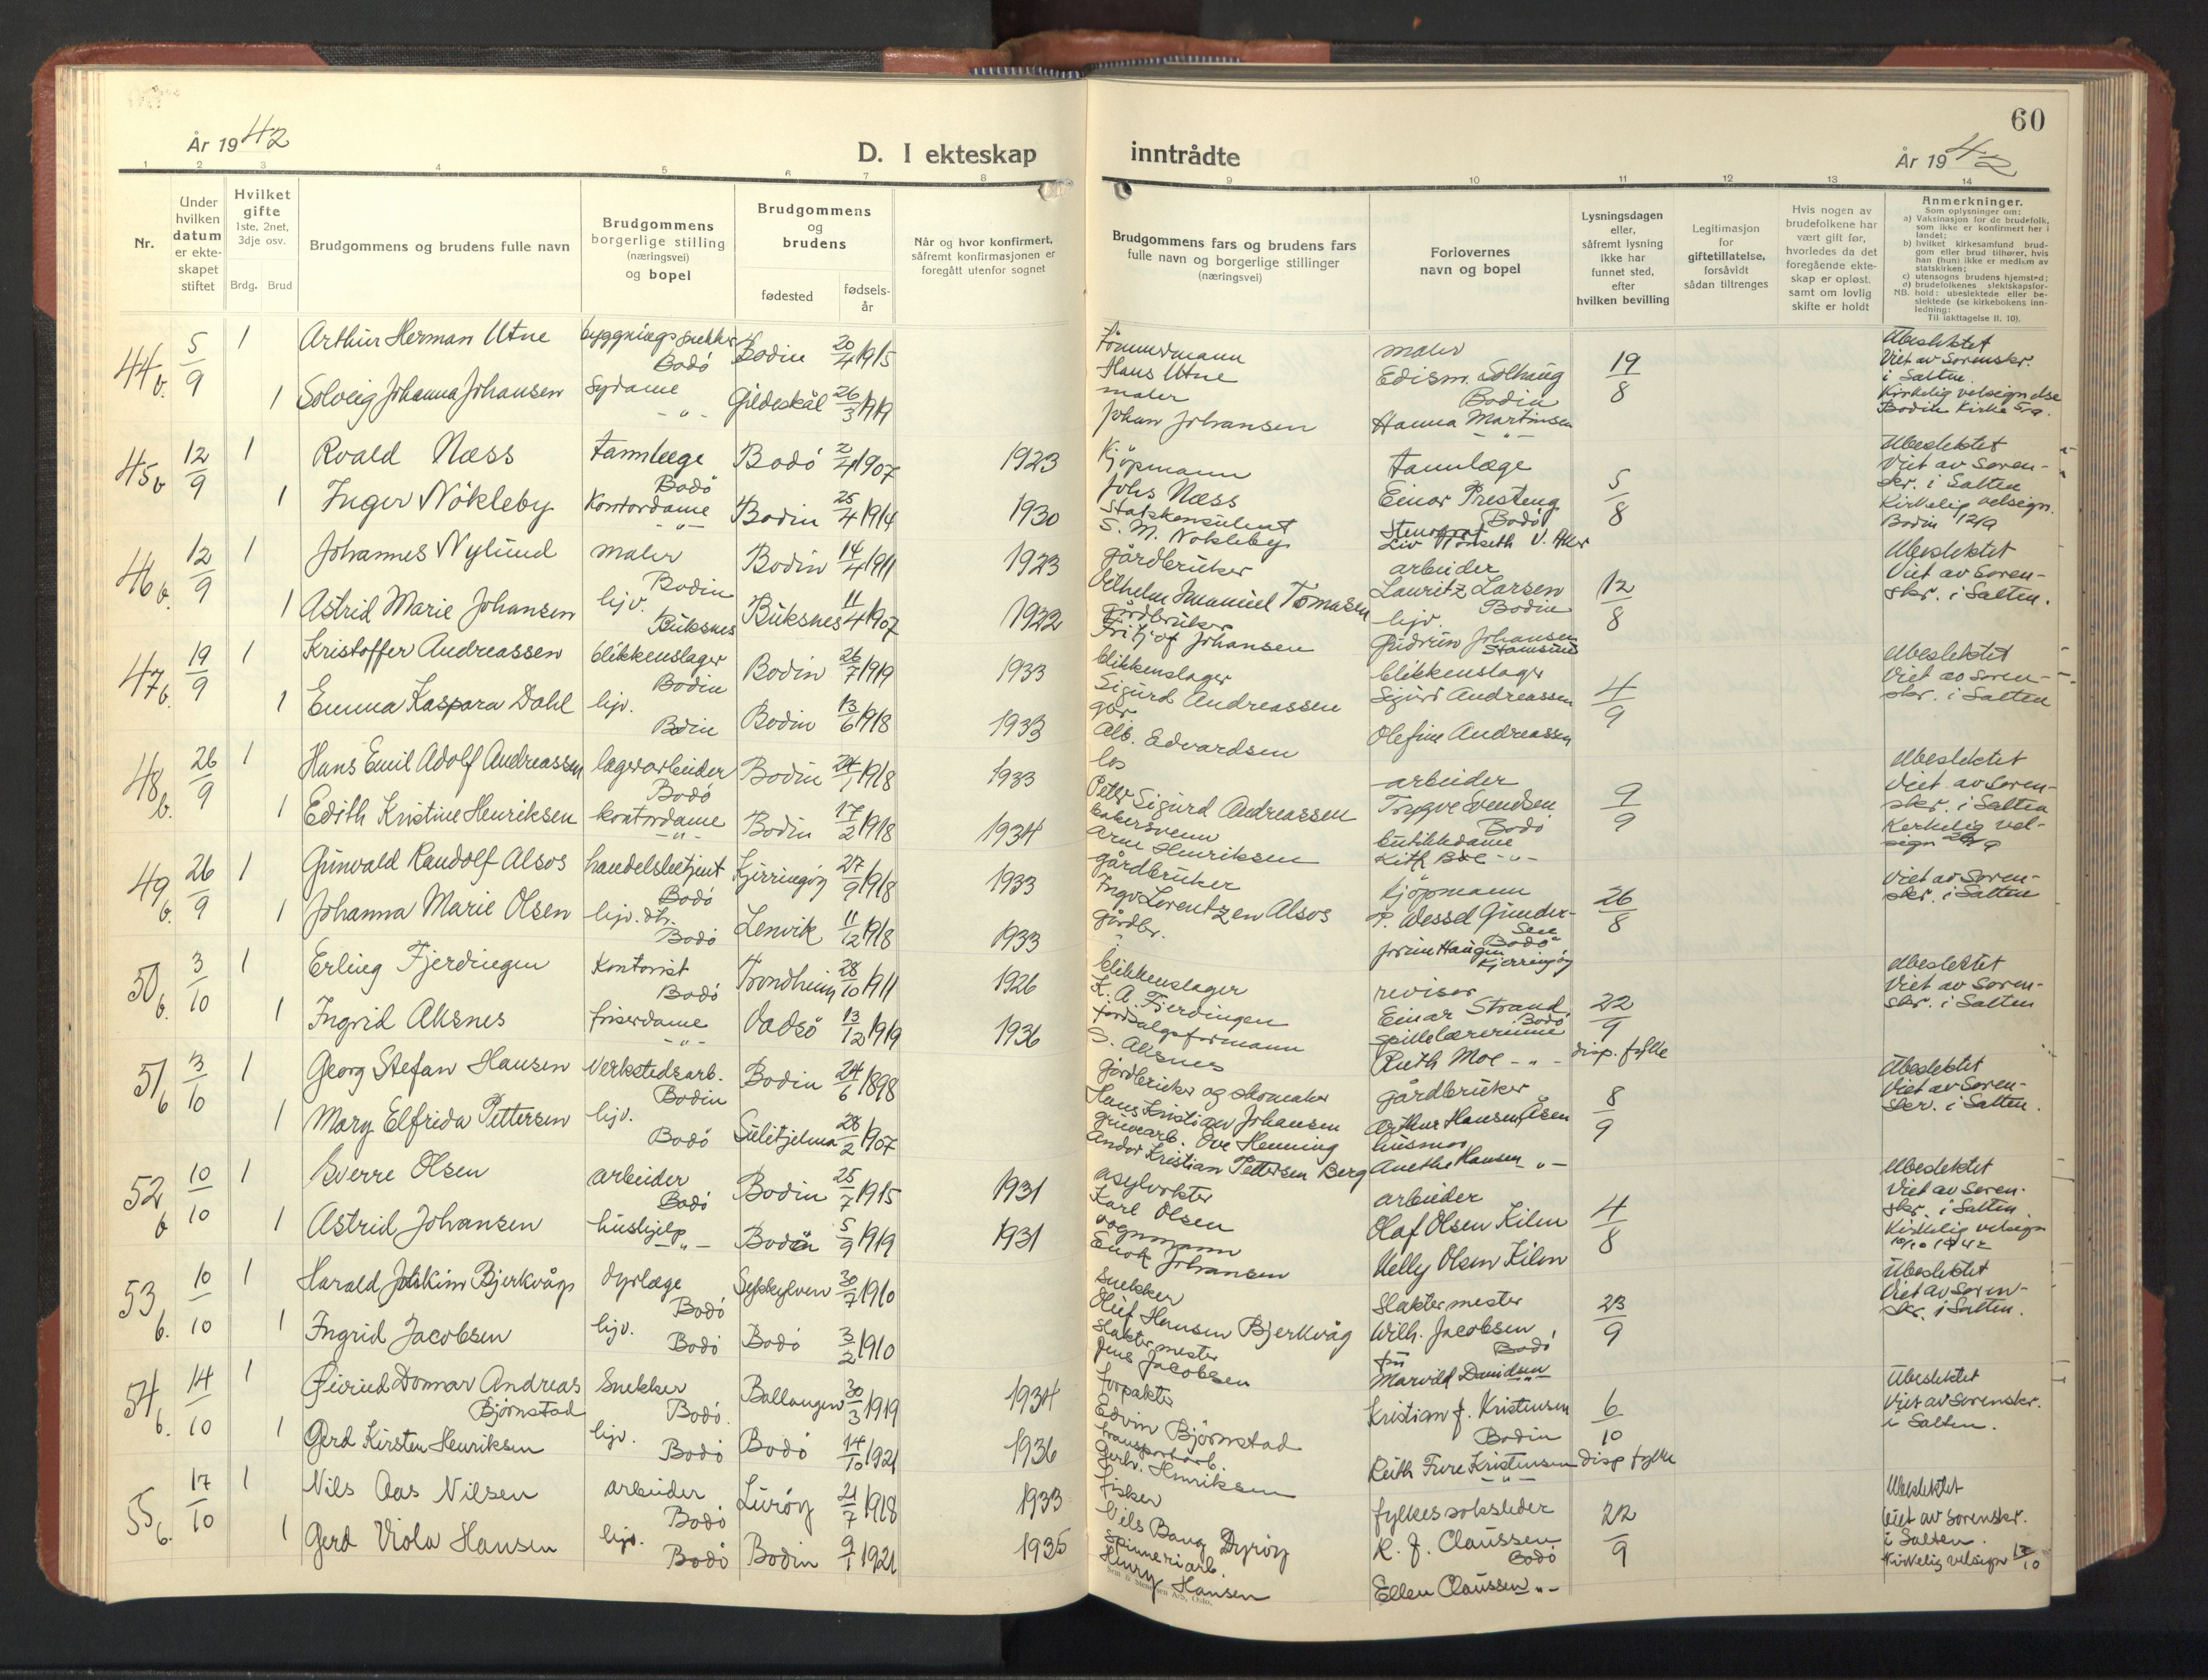 År 1942
D. I ekteskap
inntrådte
60
År 1942
1 2 3 4 5 6 7 8 9 10 11 12 13 14
Nr.
Under hvilken datum er ekte-skapet stiftet
Hvilket gifte 1ste, 2net, 3dje osv.
Brdg. Brud
Brudgommens og brudens fulle navn
Brudgommens borgerlige stilling (næringsvei) og bopel
Brudgommens og brudens
fødested
fødsels-år
Når og hvor konfirmert, såfremt konfirmasjonen er foregått utenfor sognet
Brudgommens fars og brudens fars fulle navn og borgerlige stillinger (næringsvei)
Forlovernes navn og bopel
Lysningsdagen eller, såfremt lysning ikke har funnet sted, efter hvilken bevilling
Legitimasjon for giftetillatelse, forsåvidt sådan tiltrenges
Hvis nogen av brudefolkene har vært gift før, hvorledes da det foregående ekte-skap er opløst. samt om lovlig skifte er holdt
Anmerkninger.
Som oplysninger om:
a) Vaksinasjon for de brudefolk, som ikke er konfirmert her i landet;
b) hvilket kirkesamfund brud-gom eller brud tilhører, hvis han (hun) ikke er medlem av statskirken;
c) utensogns brudens hjemsted;
d) brudefolkenes slektskapsfor-hold: ubeslektede eller be-slektede (se kirkebokens inn-ledning:
NB.
Til iakttagelse II. 10).
44 b. 5/9 1 Arthur Herman Utne bygningssnekker Bodø Bodin 20/4 1915 Tømmermann Hans Utne maler Edism. Solhaug Bodin 19/8 Ubeslektet Viet av Sorenskr. i Salten. Kirkelig velsignelse Bodin Kirke 5/9.
1 Solveig Johanna Johansen Sydame -"- Gildeskål 26/3 1919 maler Johan Johansen Hanna Martinsen -"-
45 b 12/9 1 Roald Næss tannlæge Bodø Bodø 2/4 1907 1923 Kjøpmann Johs Næss tannlæge Einar Presteng Bodø 5/8 Ubeslektet Viet av Soren-skr. i Salten Kirkelig velsign. Bodin 12/9
1 Inger Nökleby Kontordame -"- Bodin 25/4 1914 1930 Statskonsulent S. M. Nökleby Liv V. Aker
46 b. 12/9 1 Johannes Nylund maler Bodin Bodin 14/4 1911 1923 gårdbruker Vilhelm Imanuel Tomasen arbeider Lauritz Larsen Bodin 12/8 Ubeslektet Viet av Soren-skr. i Salten.
1 Astrid Marie Johansen hjv. Buksnes Buksnes 11/4 1907 1922 gårdbruker Fritjof Johansen hjv. Gudrun Johansen Stamsund
47 b. 19/9 1 Kristoffer Andreassen blikkenslager Bodin Bodin 26/7 1919 1933 blikkenslager Sigurd Andreassen blikkenslager Sigurd Andreassen 4/9 Ubeslektet Viet av Soren-skr. i Salten
1 Emma Kaspara Dahl hjv. Bodin Bodin 13/6 1918 1933 gbr. Alb. Edvardsen Olefine Andreassen
48 b. 26/9 1 Hans Emil Adolf Andreassen lagerarbeider Bodø Bodin 24/1 1918 1933 los Peter Sigurd Andreassen arbeider Trygve Svendsen Bodø 9/9 Ubeslektet Viet av Soren-skr. i Salten Kirkelig vel-sign 26/9
1 Edith Kristine Henriksen kontordame -"- Bodin 17/2 1918 1934 bakersvenn Arne Henriksen butikkdame Kith Boe -"-
49 b. 26/9 1 Gunvald Randolf Alsos handelsbetjent Bodø Kjerringøy 27/9 1918 1933 gårdbruker Ingv. Lorentzen Alsos kjøpmann P. Wessel Gunder-sen Bodø 26/8 Viet av Soren-skr. i Salten
1 Johanna Marie Olsen hjv. dtr. Bodø Lenvik 11/12 1918 1933 gårdbr. Jorun Haugen Kjerringøy
50 b. 3/10 1 Erling Fjerdingen Kontorist Bodø Trondheim 28/10 1911 1926 blikkenslager K. A. Fjerdingen revisor Einar Strand Bodø 22/9 Ubeslektet Viet av Soren-skr. i Salten
1 Ingrid Aksnes friserdame -"- Vadsø 13/12 1919 1936 forsalgsformann S. Aksnes spillelærerinne Ruth Moe -"- disp. fylke
51 b 3/10 1 Georg Stefan Hansen Verkstedsarb. Bodin Bodin 24/6 1898 gårdbruker og skomaker Hans Kristian Johansen gårdbruker Arthur Hansen, Åsen 8/9 Ubeslektet Viet av Soren-skr. i Salten.
1 Mary Elfrida Pettersen hjv. Bodø Sulitjelma 28/2 1907 gruvearb. Ove Henning Andor Kristian Pettersen Berg husmor Anethe Hansen -"-
52 b 10/10 1 Sverre Olsen arbeider Bodø Bodin 25/7 1915 1931 asylvokter Karl Olsen arbeider Olaf Olsen Kilen 4/8 Ubeslektet Viet av Soren-skr. i Salten. Kirkelig velsign 10/10 1942
1 Astrid Johansen hushjelp -"- Bodin 5/9 1919 1931 vognmann Enok Johansen Nelly Olsen Kilen
53 b. 10/10 1 Harald Joakim Bjerkvåg dyrlæge Bodø Sykkylven 30/7 1910 snekker Oluf Hansen Bjerkvåg Slaktermester Wilh. Jacobsen Bodø 23/9 Ubeslektet Viet av Soren-skr. i Salten.
1 Ingrid Jacobsen hjv. Bodø Bodø 3/2 1910 slaktermester Jens Jacobsen fru Marvild Davidsen -"-
54 b. 14/10 1 Øivind Donnar Andreas Bjørnstad Snekker Bodø. Ballangen 30/3 1919 1934 forpakter Edvin Bjørnstad Kristian J. Kristensen Bodin 6/10 Ubeslektet Viet av Sorenskr. i Salten.
1 Gerd Kirsten Henriksen hjv. Bodø Bodø 14/10 1921 1936 transportarb. Gerh. Henriksen Ruth Fure Kristensen -"- disp fylke
55 b. 17/10 1 Nils Aas Nilsen arbeider Bodø Lurøy 21/7 1918 1933 fisker Nils Bang Dyrøy fylkessoksleder K. J. Claussen Bodø 22/9 Ubeslektet Viet av Sorenskr. i Salten. Kirkelig velsign 17/10
1 Gerd Viola Hansen hjv. Bodø Bodin 9/1 1921 1935 spinneriarb. Henry Hansen Ellen Claussen -"-